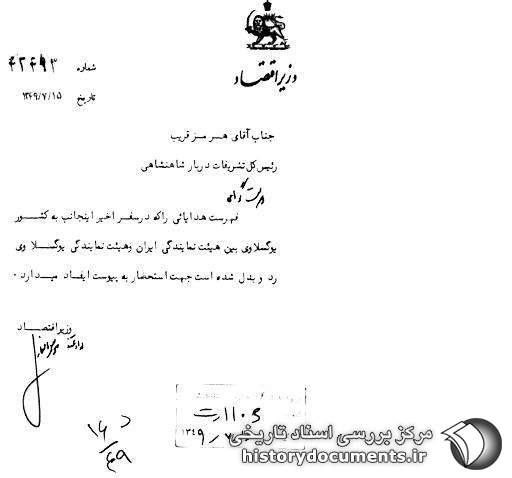 وزیر اقتصاد
شماره ۴۲۴۹۳
تاریخ ۱۳۴۹/۷/۱۵
جناب آقای هرمز قریب
رئیس کل تشریفات دربار شاهنشاهی
فهرست هدایائی را که در سفر اخیر اینجانب به کشور
یوگسلاوی بین هیئت نمایندگی ایران و هیئت نمایندگی یوگسلاوی
رد و بدل شده است جهت استحضار به پیوست ایفاد میدارد .
وزیر اقتصاد
مرکز بررسی اسناد تاریخی
historydocuments.ir